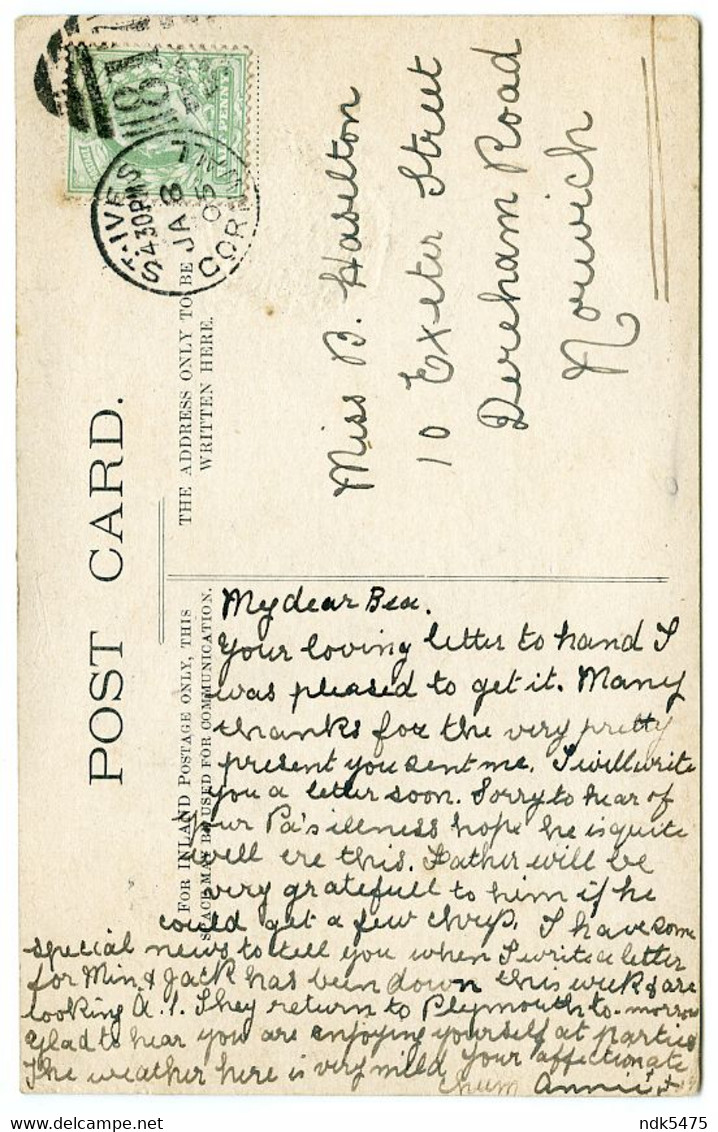 POST CARD.
FOR INLAND POSTAGE ONLY, THIS
SPACE MAY BE USED FOR COMMUNICATION.
THE ADDRESS ONLY TO BE
WRITTEN HERE.
ST. IVES
4.30PM
JA 8
CORNWALL
Miss B. Haselton
10 Exeter Street
Dereham Road
Norwich
My dear Bea.
Your loving letter to hand I
was pleased to get it. Many
thanks for the very pretty
present you sent me. I will write
you a letter soon. Sorry to hear of
your Pa's illness hope he is quite
well ere this. Father will be
very gratefull to him if he
could get a few I have some
special news to tell you when I write a letter
for Min & Jack has been down this week & are
looking A.1. They return to Plymouth to-morrow
Glad to hear you are enjoying yourself at parties
The weather here is very mild Your affectionate
chum Annie
ndk5475